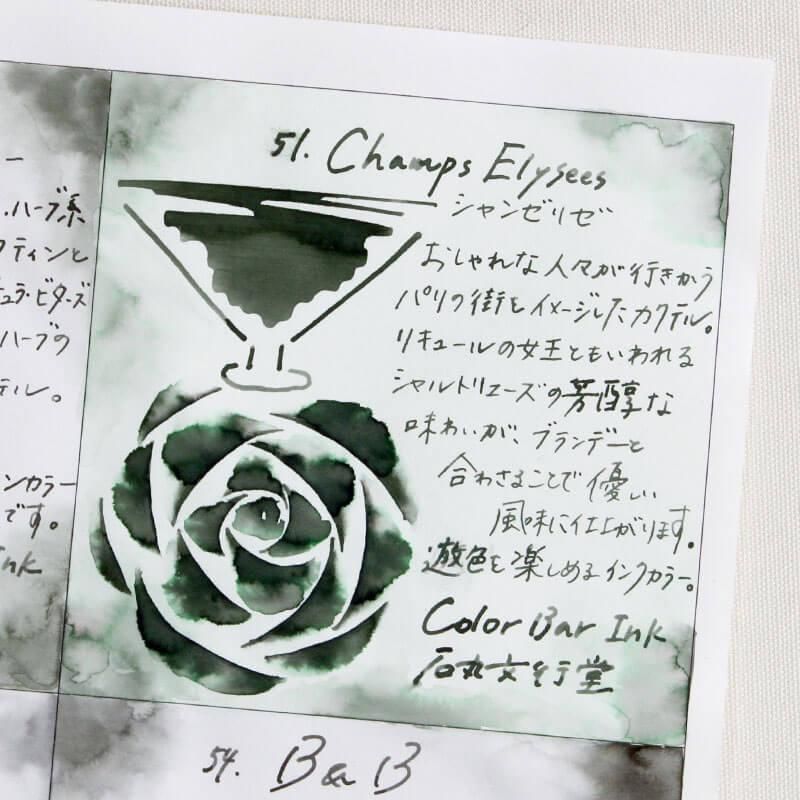 51. Champs Elysees
シャンゼリゼ
おしゃれな人々が行きかう
パリの街をイメージしたカクテル。
リキュールの女王ともいわれる
シャルトリューズの芳醇な
味わいが、ブランデーと
合わさることで優しい
風味に仕上がります。
遊色を楽しめるインクカラー。
Color Bar Ink
石丸文行堂
ハーブ系
クティンと
チュラ・ビターズ
ハーブの
テル。
ンカラー
です。
Ink
54. B&B